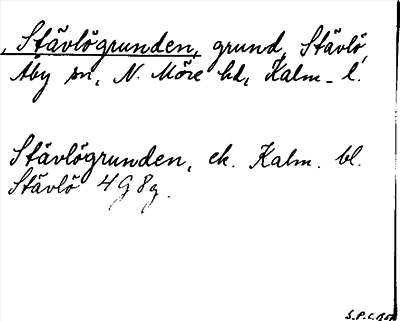 Stävlögrunden, grund, Stävlö,
Åby sn, N. Möre hd, Kalm. l.
Stävlögrunden, ek. Kalm. bl.
Stävlö 4G 8g.